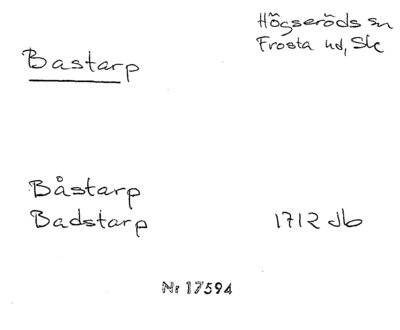 Högseröds sn
Frosta hd, Sk
Bastarp
Båstarp
Badstarp 1712 Jb
Nr 17594